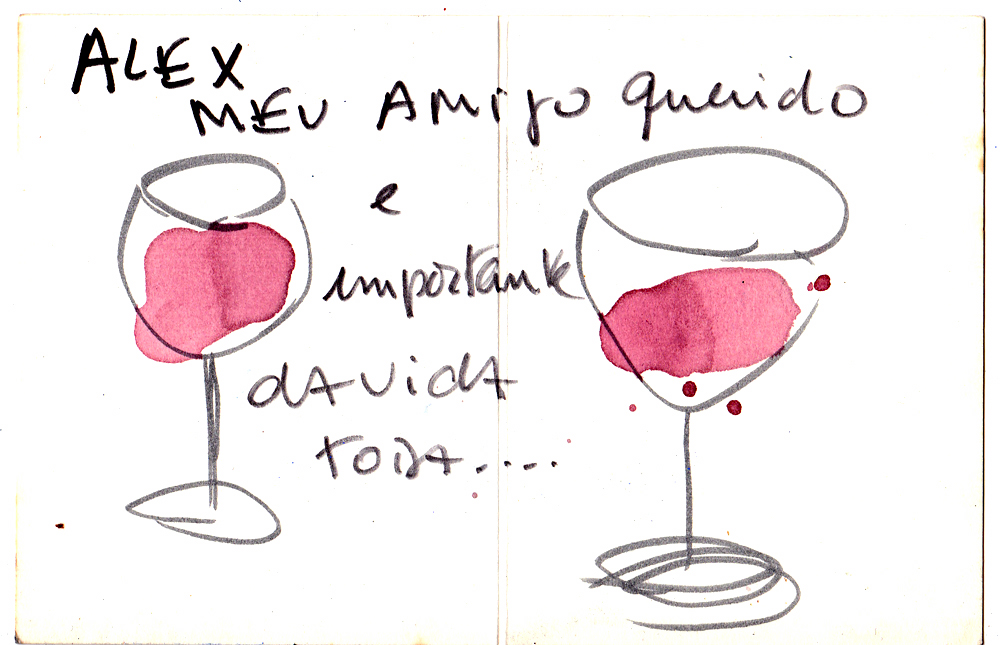 ALEX
MEU AMIgO querido
e
importante
DA VidA
TODA.....